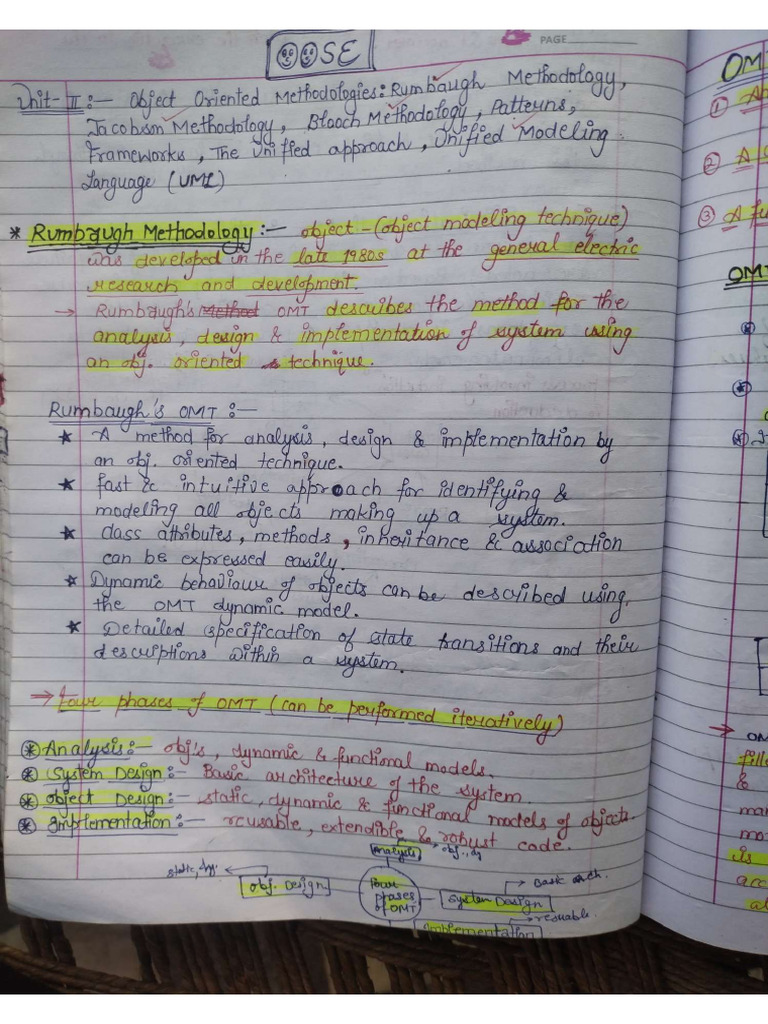 OOSE
PAGE
Unit-II :- Object Oriented Methodologies: Rumbaugh Methodology,
Jacobism Methodology, Blooch Methodology, Patterns,
Frameworks, The Unified approach, Unified Modeling
Language (UML)
* Rumbaugh Methodology :- object - (object modeling technique)
was developed in the late 1980s at the general electric
research and development.
→ Rumbaugh's Method OMT describes the method for the
analysis, design & implementation of system using
an obj. oriented technique.
Rumbaugh's OMT :-
★ A method for analysis, design & implementation by
an obj. oriented technique.
★ fast & intuitive approach for identifying &
modeling all objects making up a system.
★ class attributes, methods, inheritance & association
can be expressed easily.
★ Dynamic behaviour of objects can be described using,
the OMT dynamic model.
★ Detailed specification of state transitions and their
descriptions within a system.
→ Four phases of OMT (can be performed iteratively)
* Analysis :- obj's, dynamic & functional models.
* System Design :- Basic architecture of the system.
* Object Design :- static, dynamic & functional models of objects.
* Implementation :- reusable, extendible & robust code.
Analysis → obj., dy
static, dy. ← obj. Design
Four phases of OMT
System Design → Basic arch.
Implementation → resuable.
OM
①
② A
③ A fu
OM
OM
fille
&
man
mo
is
acc
al